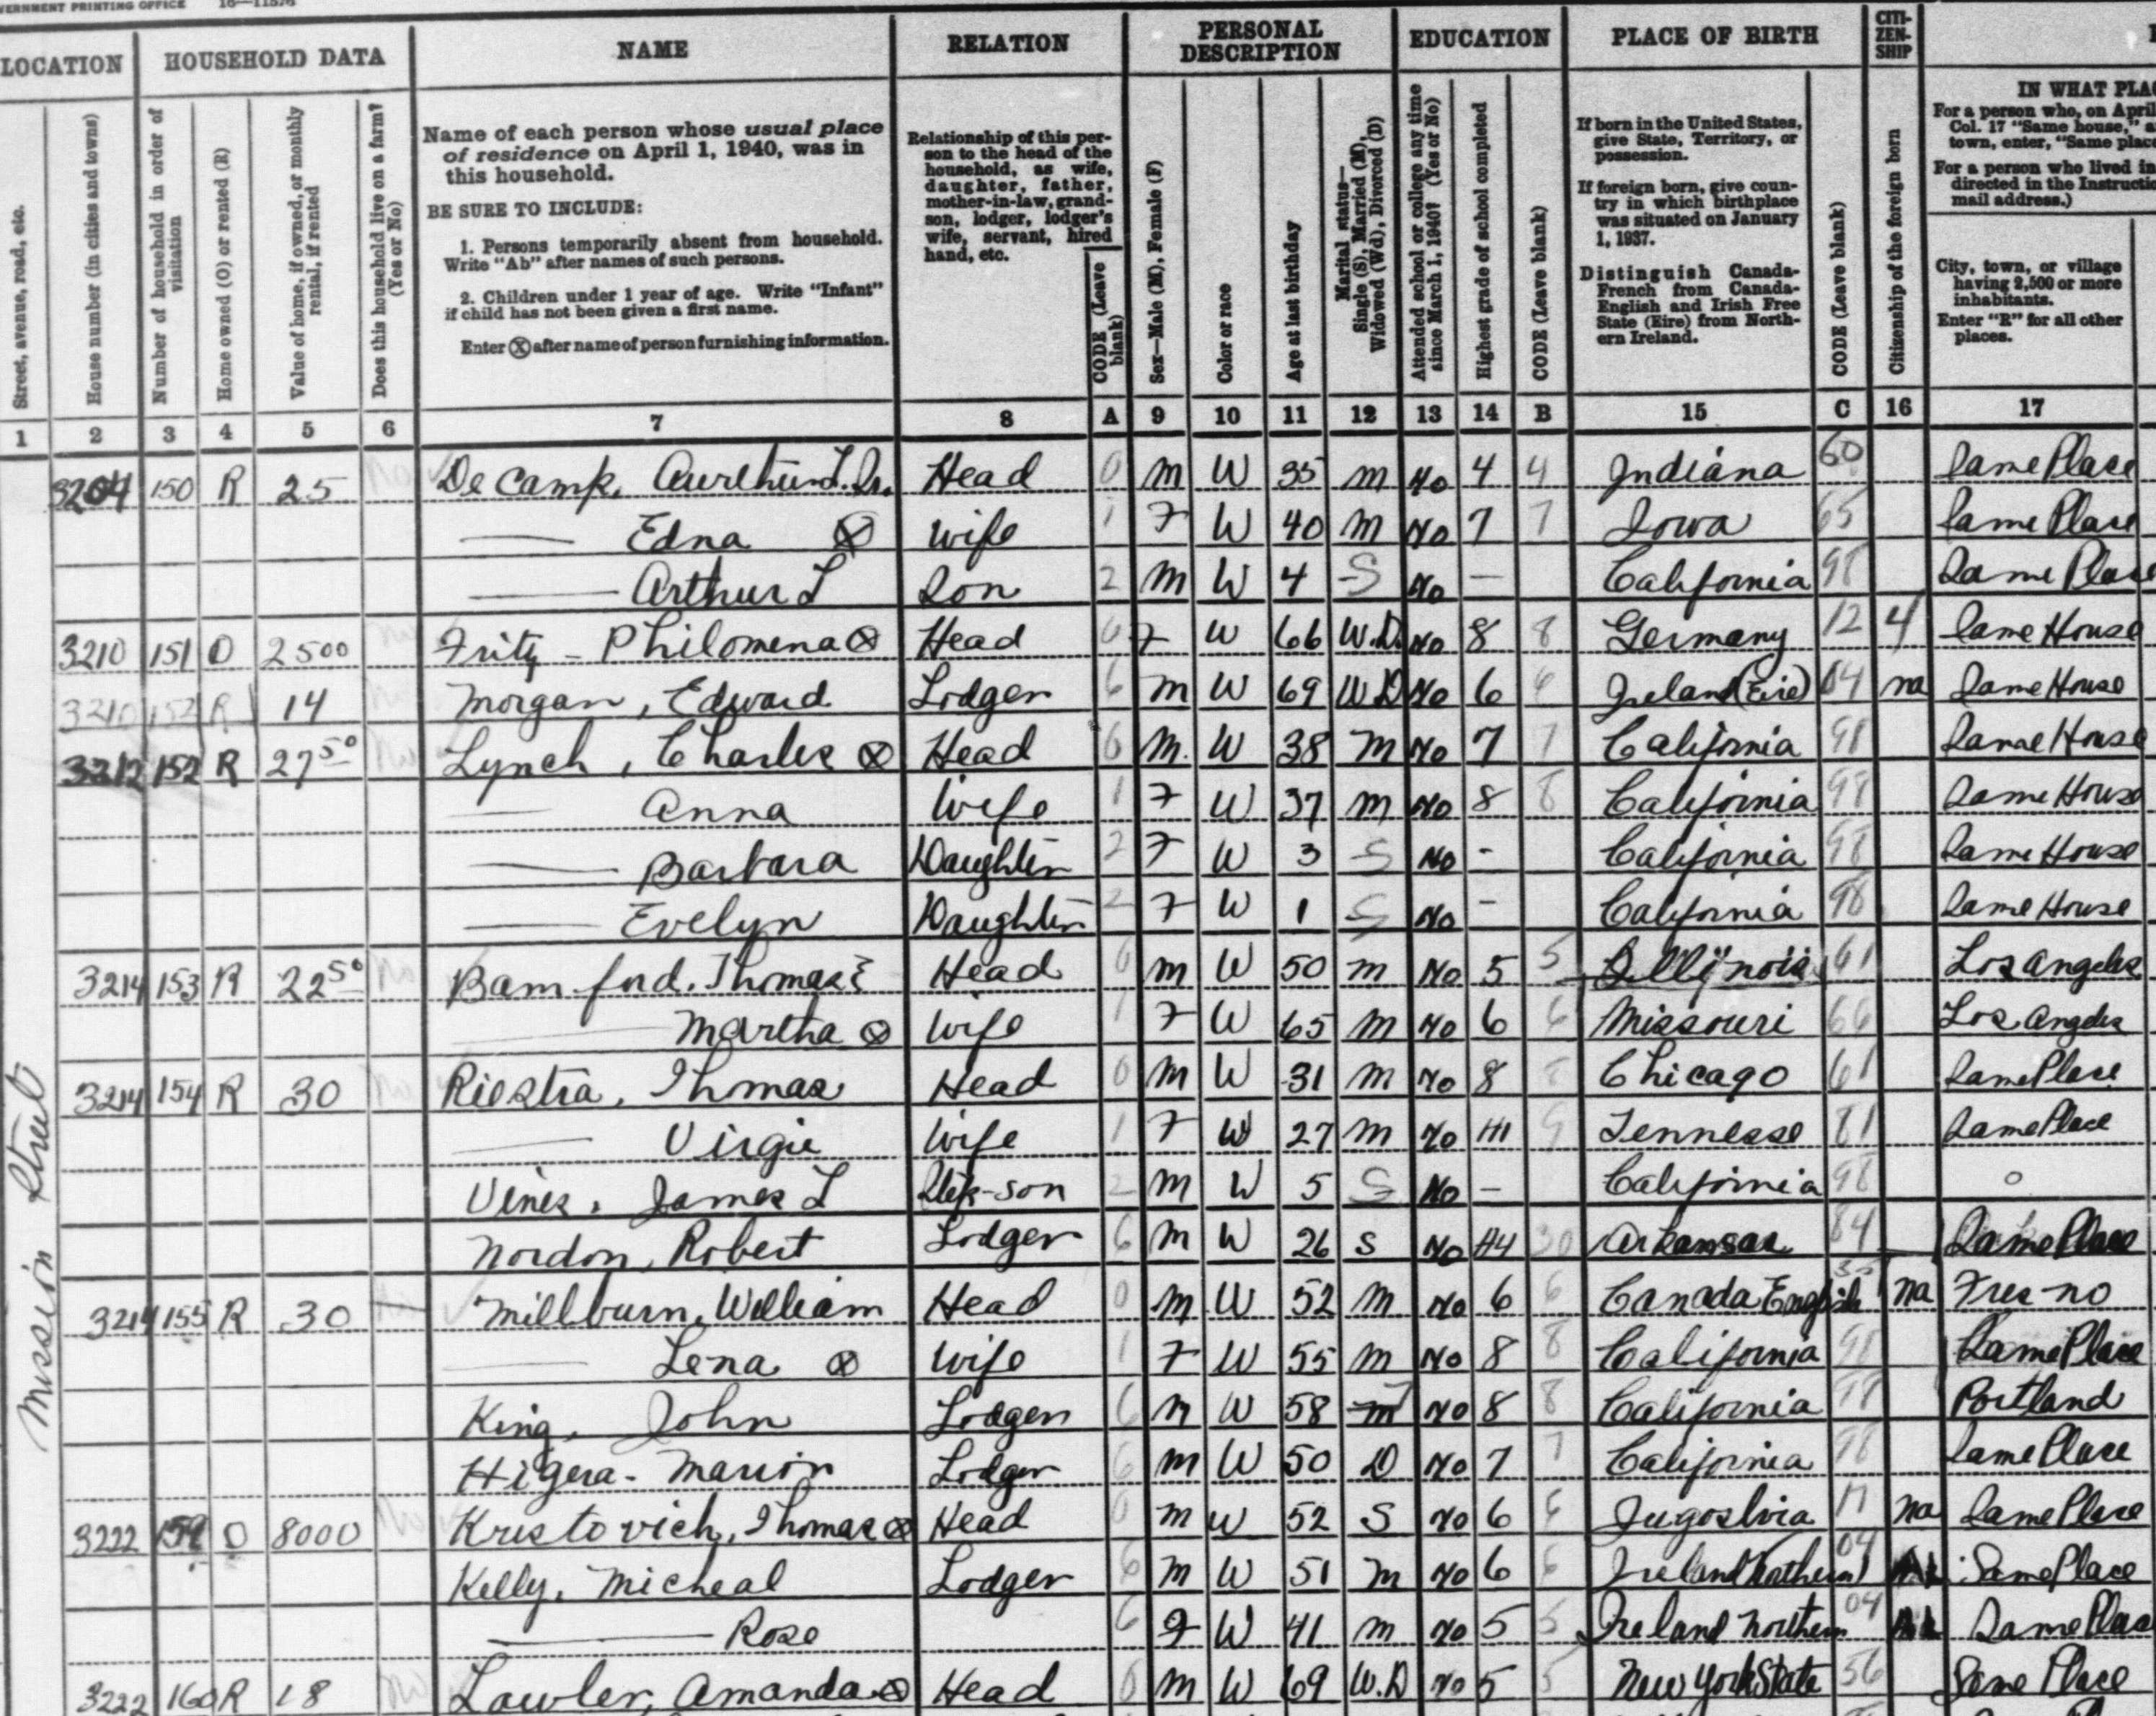 VERNMENT PRINTING OFFICE 16—11576
LOCATION HOUSEHOLD DATA NAME RELATION PERSONAL DESCRIPTION EDUCATION PLACE OF BIRTH CITI-ZEN-SHIP
Street, avenue, road, etc.
House number (in cities and towns)
Number of household in order of visitation
Home owned (O) or rented (R)
Value of home, if owned, or monthly rental, if rented
Does this household live on a farm? (Yes or No)
Name of each person whose usual place
of residence on April 1, 1940, was in
this household.
BE SURE TO INCLUDE:
1. Persons temporarily absent from household.
Write "Ab" after names of such persons.
2. Children under 1 year of age. Write "Infant"
if child has not been given a first name.
Enter Ⓧ after name of person furnishing information.
Relationship of this per-
son to the head of the
household, as wife,
daughter, father,
mother-in-law, grand-
son, lodger, lodger's
wife, servant, hired
hand, etc.
CODE (Leave blank)
Sex—Male (M), Female (F)
Color or race
Age at last birthday
Marital status—
Single (S), Married (M),
Widowed (Wd), Divorced (D)
Attended school or college any time
since March 1, 1940? (Yes or No)
Highest grade of school completed
CODE (Leave blank)
If born in the United States,
give State, Territory, or
possession.
If foreign born, give coun-
try in which birthplace
was situated on January
1, 1937.
Distinguish Canada-
French from Canada-
English and Irish Free
State (Eire) from North-
ern Ireland.
CODE (Leave blank)
Citizenship of the foreign born
IN WHAT PLA
For a person who, on April
Col. 17 "Same house," a
town, enter, "Same place
For a person who lived in
directed in the Instructi
mail address.)
City, town, or village
having 2,500 or more
inhabitants.
Enter "R" for all other
places.
1 2 3 4 5 6 7 8 A 9 10 11 12 13 14 B 15 C 16 17
Mission Street
3204 150 R 25 De Camp, Aurthur L. Jr. Head 0 M W 35 M No 4 4 Indiana 60 Same Place
— Edna Ⓧ Wife 1 F W 40 M No 7 7 Iowa 65 Same Place
— Arthur L Son 2 M W 4 S No — California 98 Same Place
3210 151 O 2500 Fritz - Philomena Ⓧ Head 0 F W 66 W.D. No 8 8 Germany 12 4 Same House
3210 152 R 14 Morgan, Edward Lodger 6 M W 69 WD No 6 6 Ireland (Eire) 04 na Same House
3212 152 R 27 50 Lynch, Charles Ⓧ Head 0 M. W 38 M No 7 7 California 98 Same House
— Anna Wife 1 F W 37 M No 8 8 California 98 Same House
— Barbara Daughter 2 F W 3 S No - California 98 Same House
— Evelyn Daughter 2 F W 1 S No - California 98 Same House
3214 153 R 22 50 Bamford. Thomas E Head 0 M W 50 M No 5 5 Illinois 61 Los Angeles
— Martha Ⓧ Wife 1 F W 65 M No 6 6 Missouri 66 Los Angeles
3214 154 R 30 Riestra, Thomas Head 0 M W 31 M No 8 8 Chicago 61 Same Place
— Virgie Wife 1 F W 27 M No H1 9 Tennesse 81 Same Place
Vines, James L Step-son 2 M W 5 S No - California 98 o
Nordon, Robert Lodger 6 M W 26 S No H4 30 Arkansas 84 Same Place
3214 155 R 30 Millburn, William Head 0 M W 52 M No 6 6 Canada English na Fresno
— Lena Ⓧ Wife 1 F W 55 M No 8 8 California 98 Same Place
King, John Lodger 6 M W 58 M No 8 8 California 98 Portland
Higera - Marion Lodger 6 M W 50 D No 7 7 California 98 Same Place
3222 159 O 8000 Kristovich, Thomas Ⓧ Head 0 M W 52 S No 6 6 Jugoslvia 17 na Same Place
Kelly, Micheal Lodger 6 M W 51 M No 6 6 Ireland Northern 04 Same Place
— Rose 6 F W 41 M No 5 5 Ireland Northern 04 Same Place
3222 160 R 18 Lawler, Amanda Ⓧ Head 0 M W 69 W.D No 5 5 New York State 56 Same Place